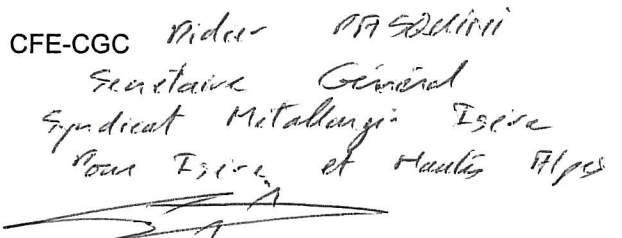 CFE-CGC Didier PASQUINI
Secrétaire Général
Syndicat Métallurgie Isère
Pour Isère et Hautes Alpes